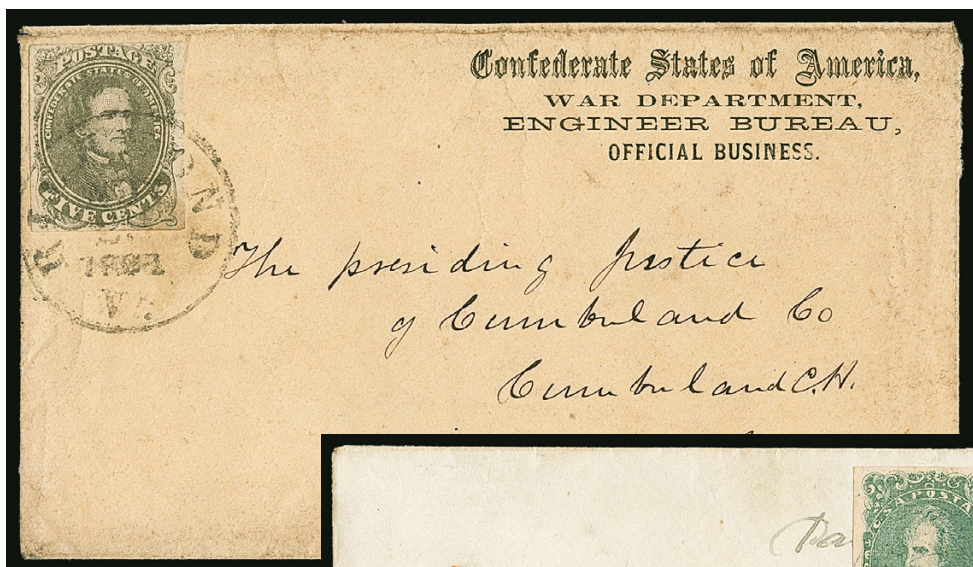 POSTAGE
CONFEDERATE STATES OF AMERICA
FIVE CENTS
Confederate States of America,
WAR DEPARTMENT,
ENGINEER BUREAU,
OFFICIAL BUSINESS.
RICHMOND
VA.
The presiding Justice
of Cumberland Co
Cumberland C.H.
C S A POSTA